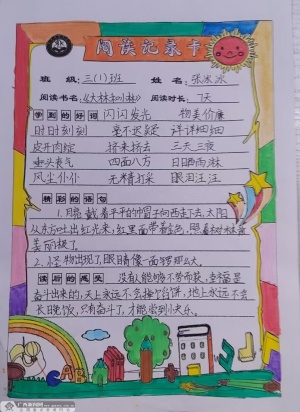 阅读记录卡
班 级:三(1)班 姓 名:张冰冰
阅读书名:《大林和小林》 阅读时长:7天
学到的好词 闪闪发光 物美价廉
时时刻刻 毫不迟疑 详详细细
皮开肉绽 挤来挤去 三天三夜
垂头丧气 四面八方 日晒雨淋
风尘仆仆 无精打采 眼泪汪汪
精彩的语句
1.月亮戴着平平的帽子向西走去,太阳
从东方吐出红光来,红里面带着金色,照着树林
美丽极了。
2.怪物出现了,眼睛像一面锣那么大。
读后的感受 没有人能够不劳而获,幸福是
奋斗出来的,天上永远不会掉个馅饼,地上永远不会
长晚饭,只有奋斗了,才能尝到小快乐。
CAB